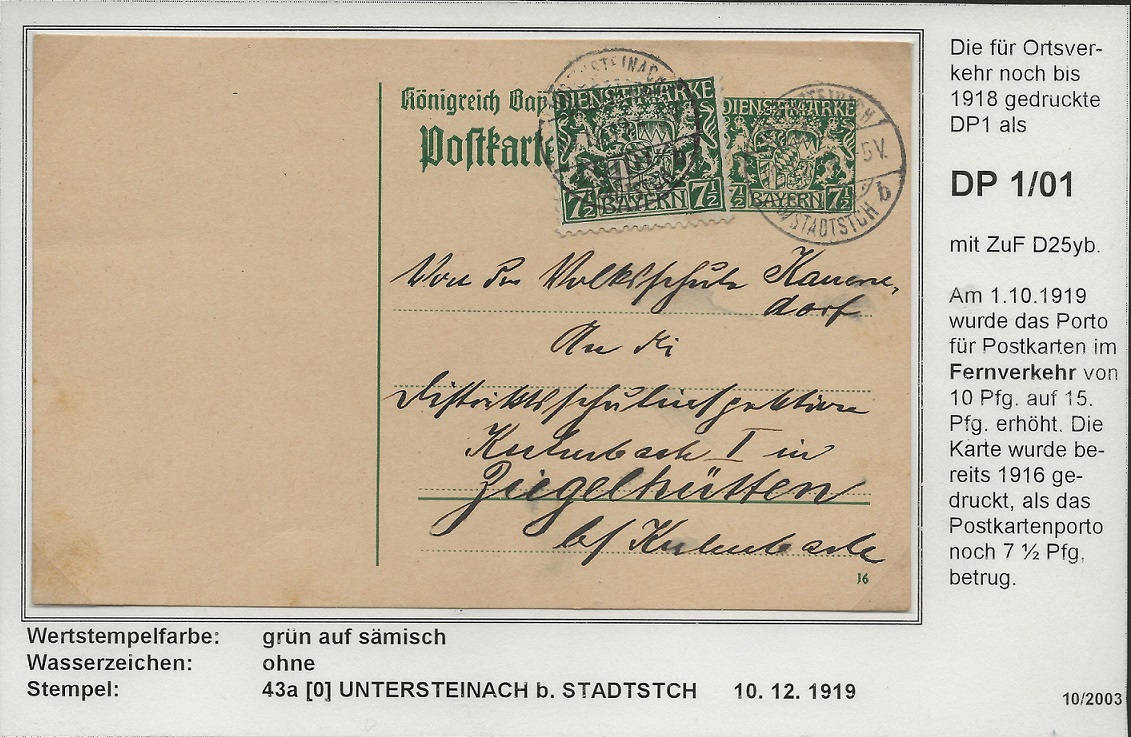 Königreich Bay
Postkarte
DIENSTMARKE
7½ BAYERN 7½
DIENSTMARKE
7½ BAYERN 7½
STEINACH
5V.
STADTSTCH b
Von der Volksschule Kauern-
dorf
An die
Distriktsschulinspektion
Kulmbach I in
Ziegelhütten
b/ Kulmbach
16
Die für Ortsver-
kehr noch bis
1918 gedruckte
DP1 als
DP 1/01
mit ZuF D25yb.
Am 1.10.1919
wurde das Porto
für Postkarten im
Fernverkehr von
10 Pfg. auf 15.
Pfg. erhöht. Die
Karte wurde be-
reits 1916 ge-
druckt, als das
Postkartenporto
noch 7 ½ Pfg,
betrug.
Wertstempelfarbe: grün auf sämisch
Wasserzeichen: ohne
Stempel: 43a [0] UNTERSTEINACH b. STADTSTCH 10. 12. 1919
10/2003